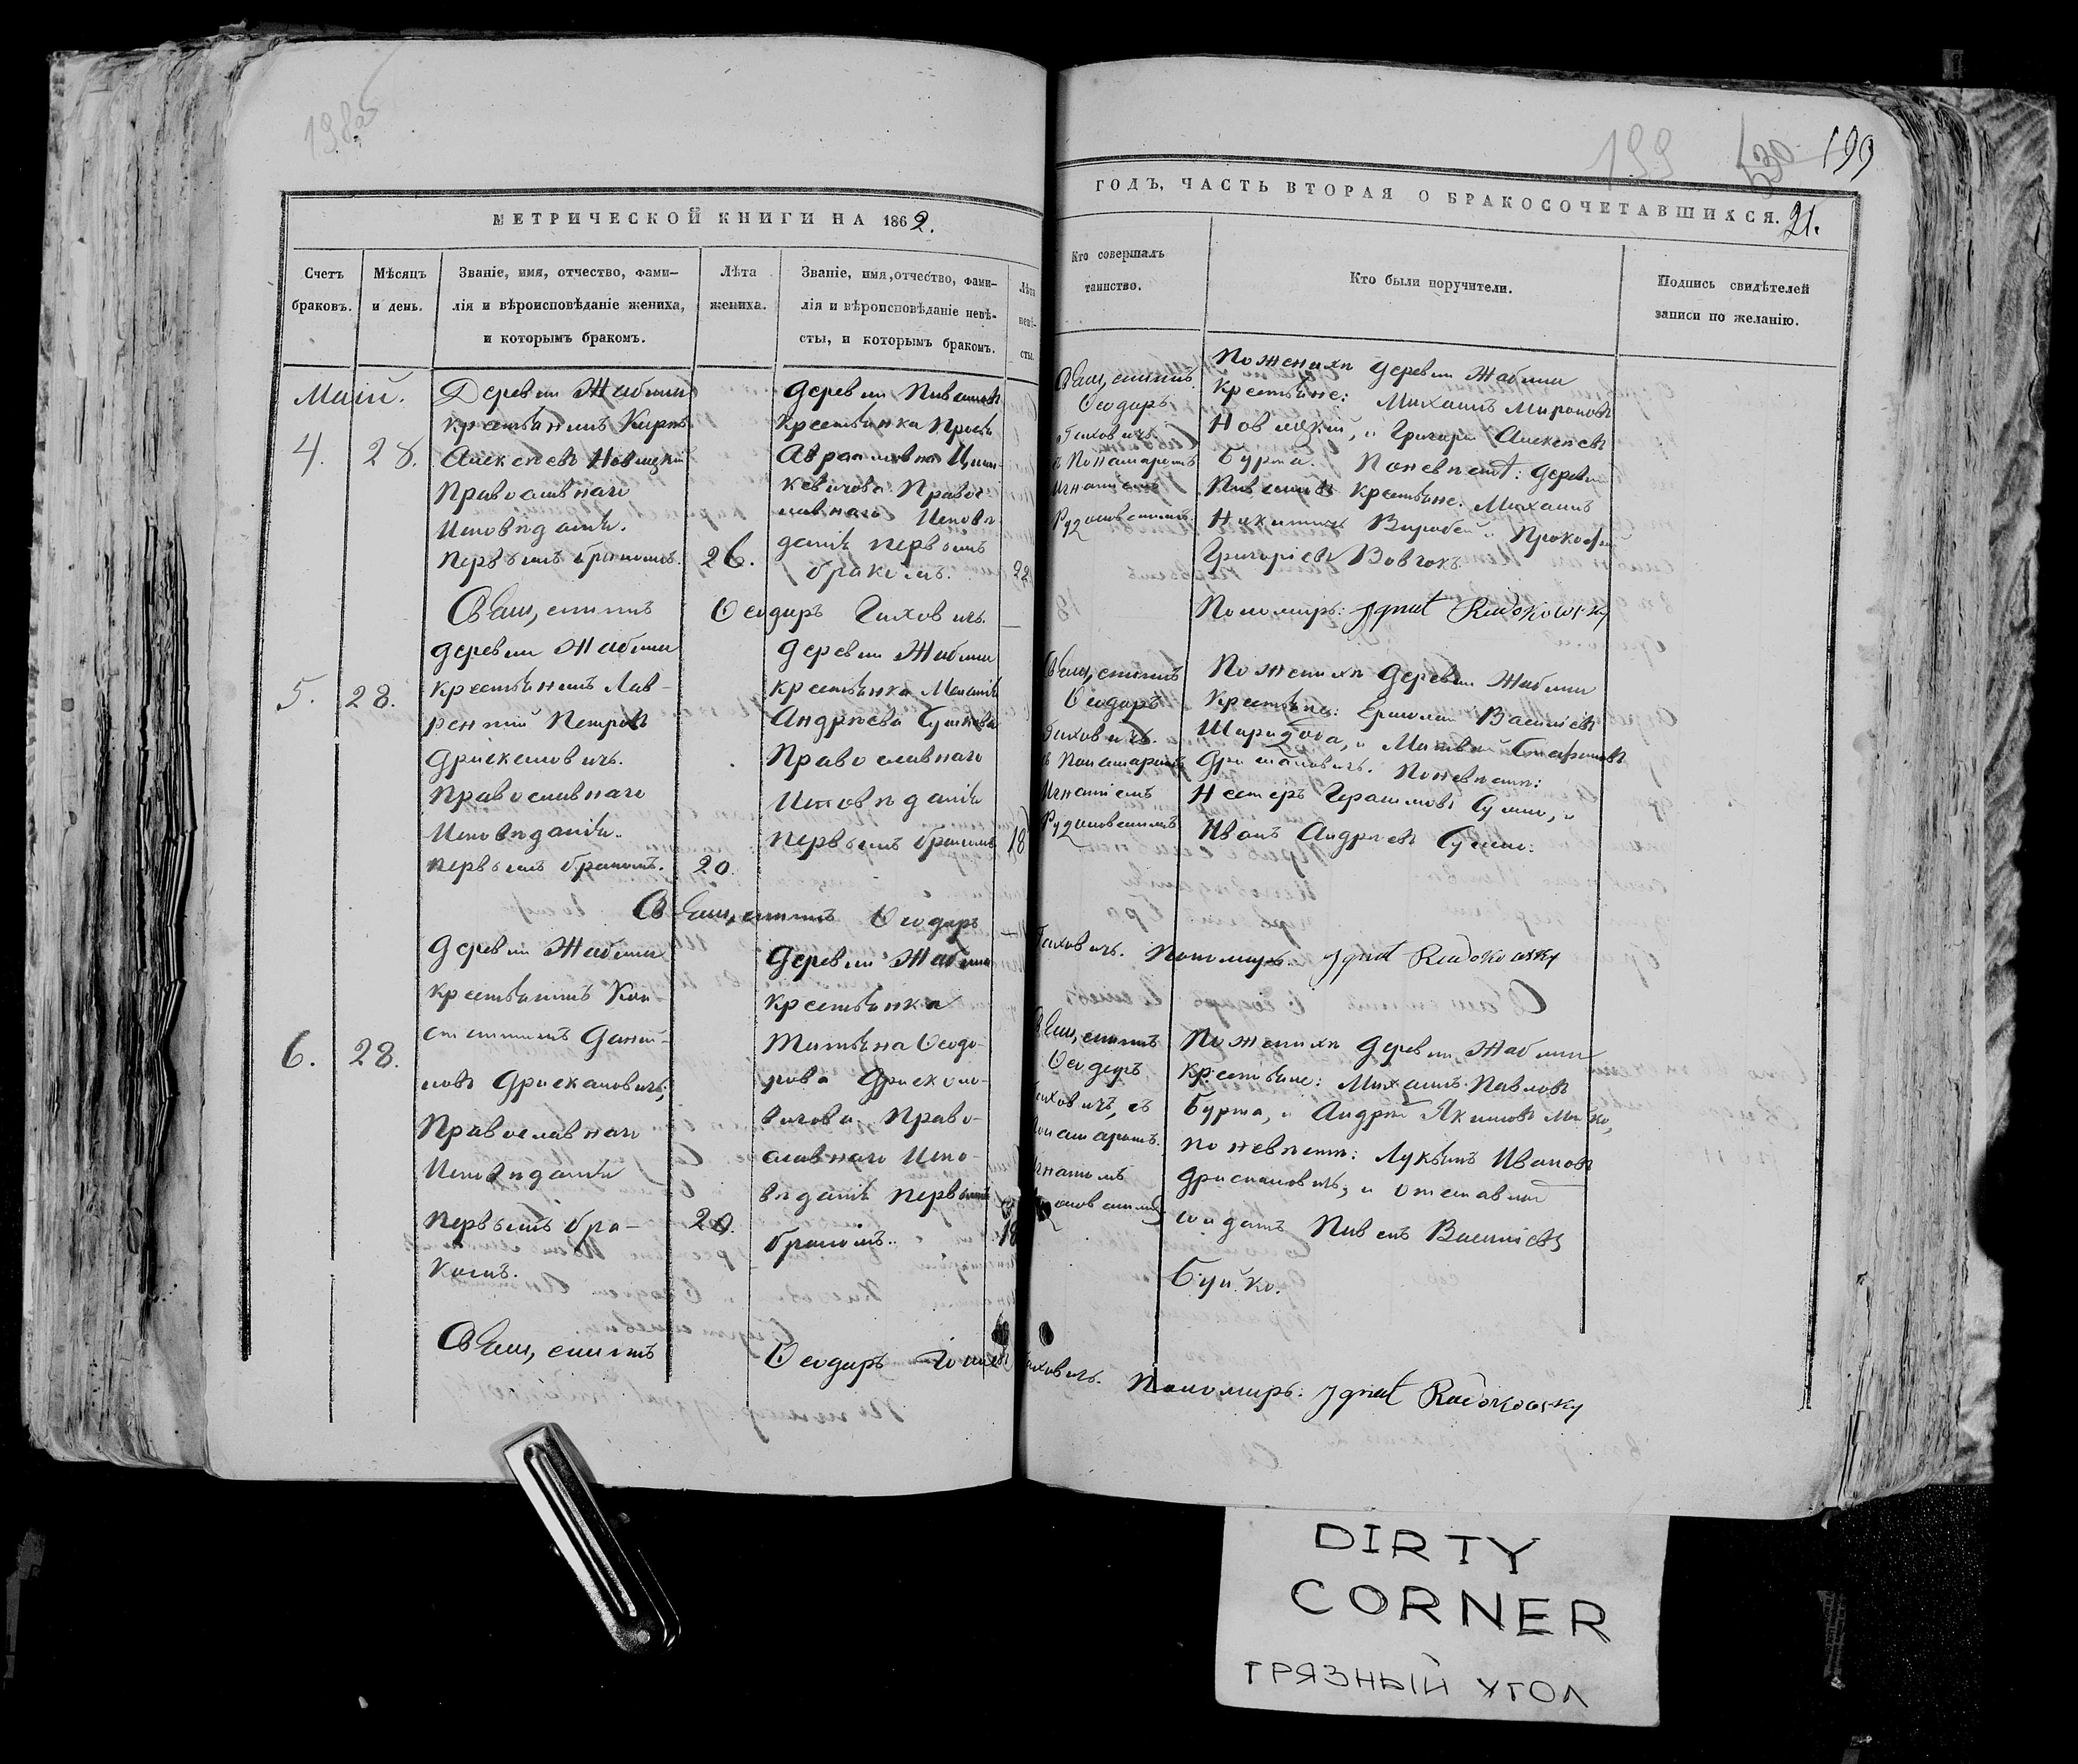 198об
199
530
199
МЕТРИЧЕСКОЙ КНИГИ НА 1862.
ГОДЪ, ЧАСТЬ ВТОРАЯ О БРАКОСОЧЕТАВШИХСЯ. 21.
Счетъ
браковъ.
Мѣсяцъ
и день.
Званіе, имя, отчество, фами-
лія и вѣроисповѣданіе жениха,
и которымъ бракомъ.
Лѣта
жениха.
Званіе, имя, отчество, фами-
лія и вѣроисповѣданіе невѣ-
сты, и которымъ бракомъ.
Лѣта
невѣ-
сты.
Кто совершалъ
таинство.
Кто были поручители.
Подпись свидѣтелей
записи по желанію.
Маій.
4.
28.
Деревни Жабинки
крестьянинъ
Алексѣевъ Новицкій
Православнаго
Исповѣданія.
первымъ бракомъ.
26.
Деревни
Крестьянка
Авраамовна
Правос
лавнаго Исповѣ
данія первымъ
бракомъ.
22
Священникъ
Ѳеодоръ
Гаховичъ
съ Пономаремъ
Игнатіемъ
По женихѣ деревни Жабинки
Крестьяне: Михаилъ Мироновъ
Новицкій, и Григорій Алексѣевъ
Бурма. По невѣстѣ: деревни
Крестьяне: Михаилъ
Никитичъ Воробей и Прокофій
Григоріевъ Вовчокъ
Священникъ Ѳеодоръ Гаховичъ.
Пономаръ: Jgnat Rudokowsky
5.
28.
деревни Жабинки
крестьянинъ Лав-
рентій Петровъ
Дрискановичъ.
Православнаго
Исповѣданія.
первымъ бракомъ.
20.
деревни Жабинки
крестьянка Меланія
Андрѣева
Православнаго
Исповѣданія
первымъ бракомъ
18
Священникъ
Ѳеодоръ
Гаховичъ.
съ Пономаремъ
Игнатіемъ
По женихѣ деревни Жабинки
Крестьяне: Ермолай Василіевъ
и Матвѣй
По невѣстѣ:
Нестеръ Герасимовъ и
Иванъ Андрѣевъ
Священникъ Ѳеодоръ
Гаховичъ. Пономаръ: Jgnat Rudokowsky
6.
28.
деревни Жабинки
крестьянинъ Кон
стантинъ Дани-
ловъ Дрискановичъ,
Православнаго
Исповѣданія
первымъ бра-
комъ.
20.
деревни Жабинки
крестьянка
Татьяна Ѳеодо-
рова Дрискано-
вичова, Право-
славнаго Испо-
вѣданія первымъ
бракомъ.
18
Священникъ
Ѳеодоръ
Гаховичъ, съ
Пономаремъ.
Игнатіемъ
По женихѣ деревни Жабинки
Крестьяне: Михаилъ Павловъ
Бурма, и Андрей Якимовъ
по невѣстѣ: Лукьянъ Ивановъ
Дрискановичъ, и отставной
солдатъ Павелъ Василіевъ
Буйко.
Священникъ Ѳеодоръ Гаховичъ.
Пономаръ: Jgnat Rudokowsky
DIRTY
CORNER
ГРЯЗНЫЙ УГОЛ